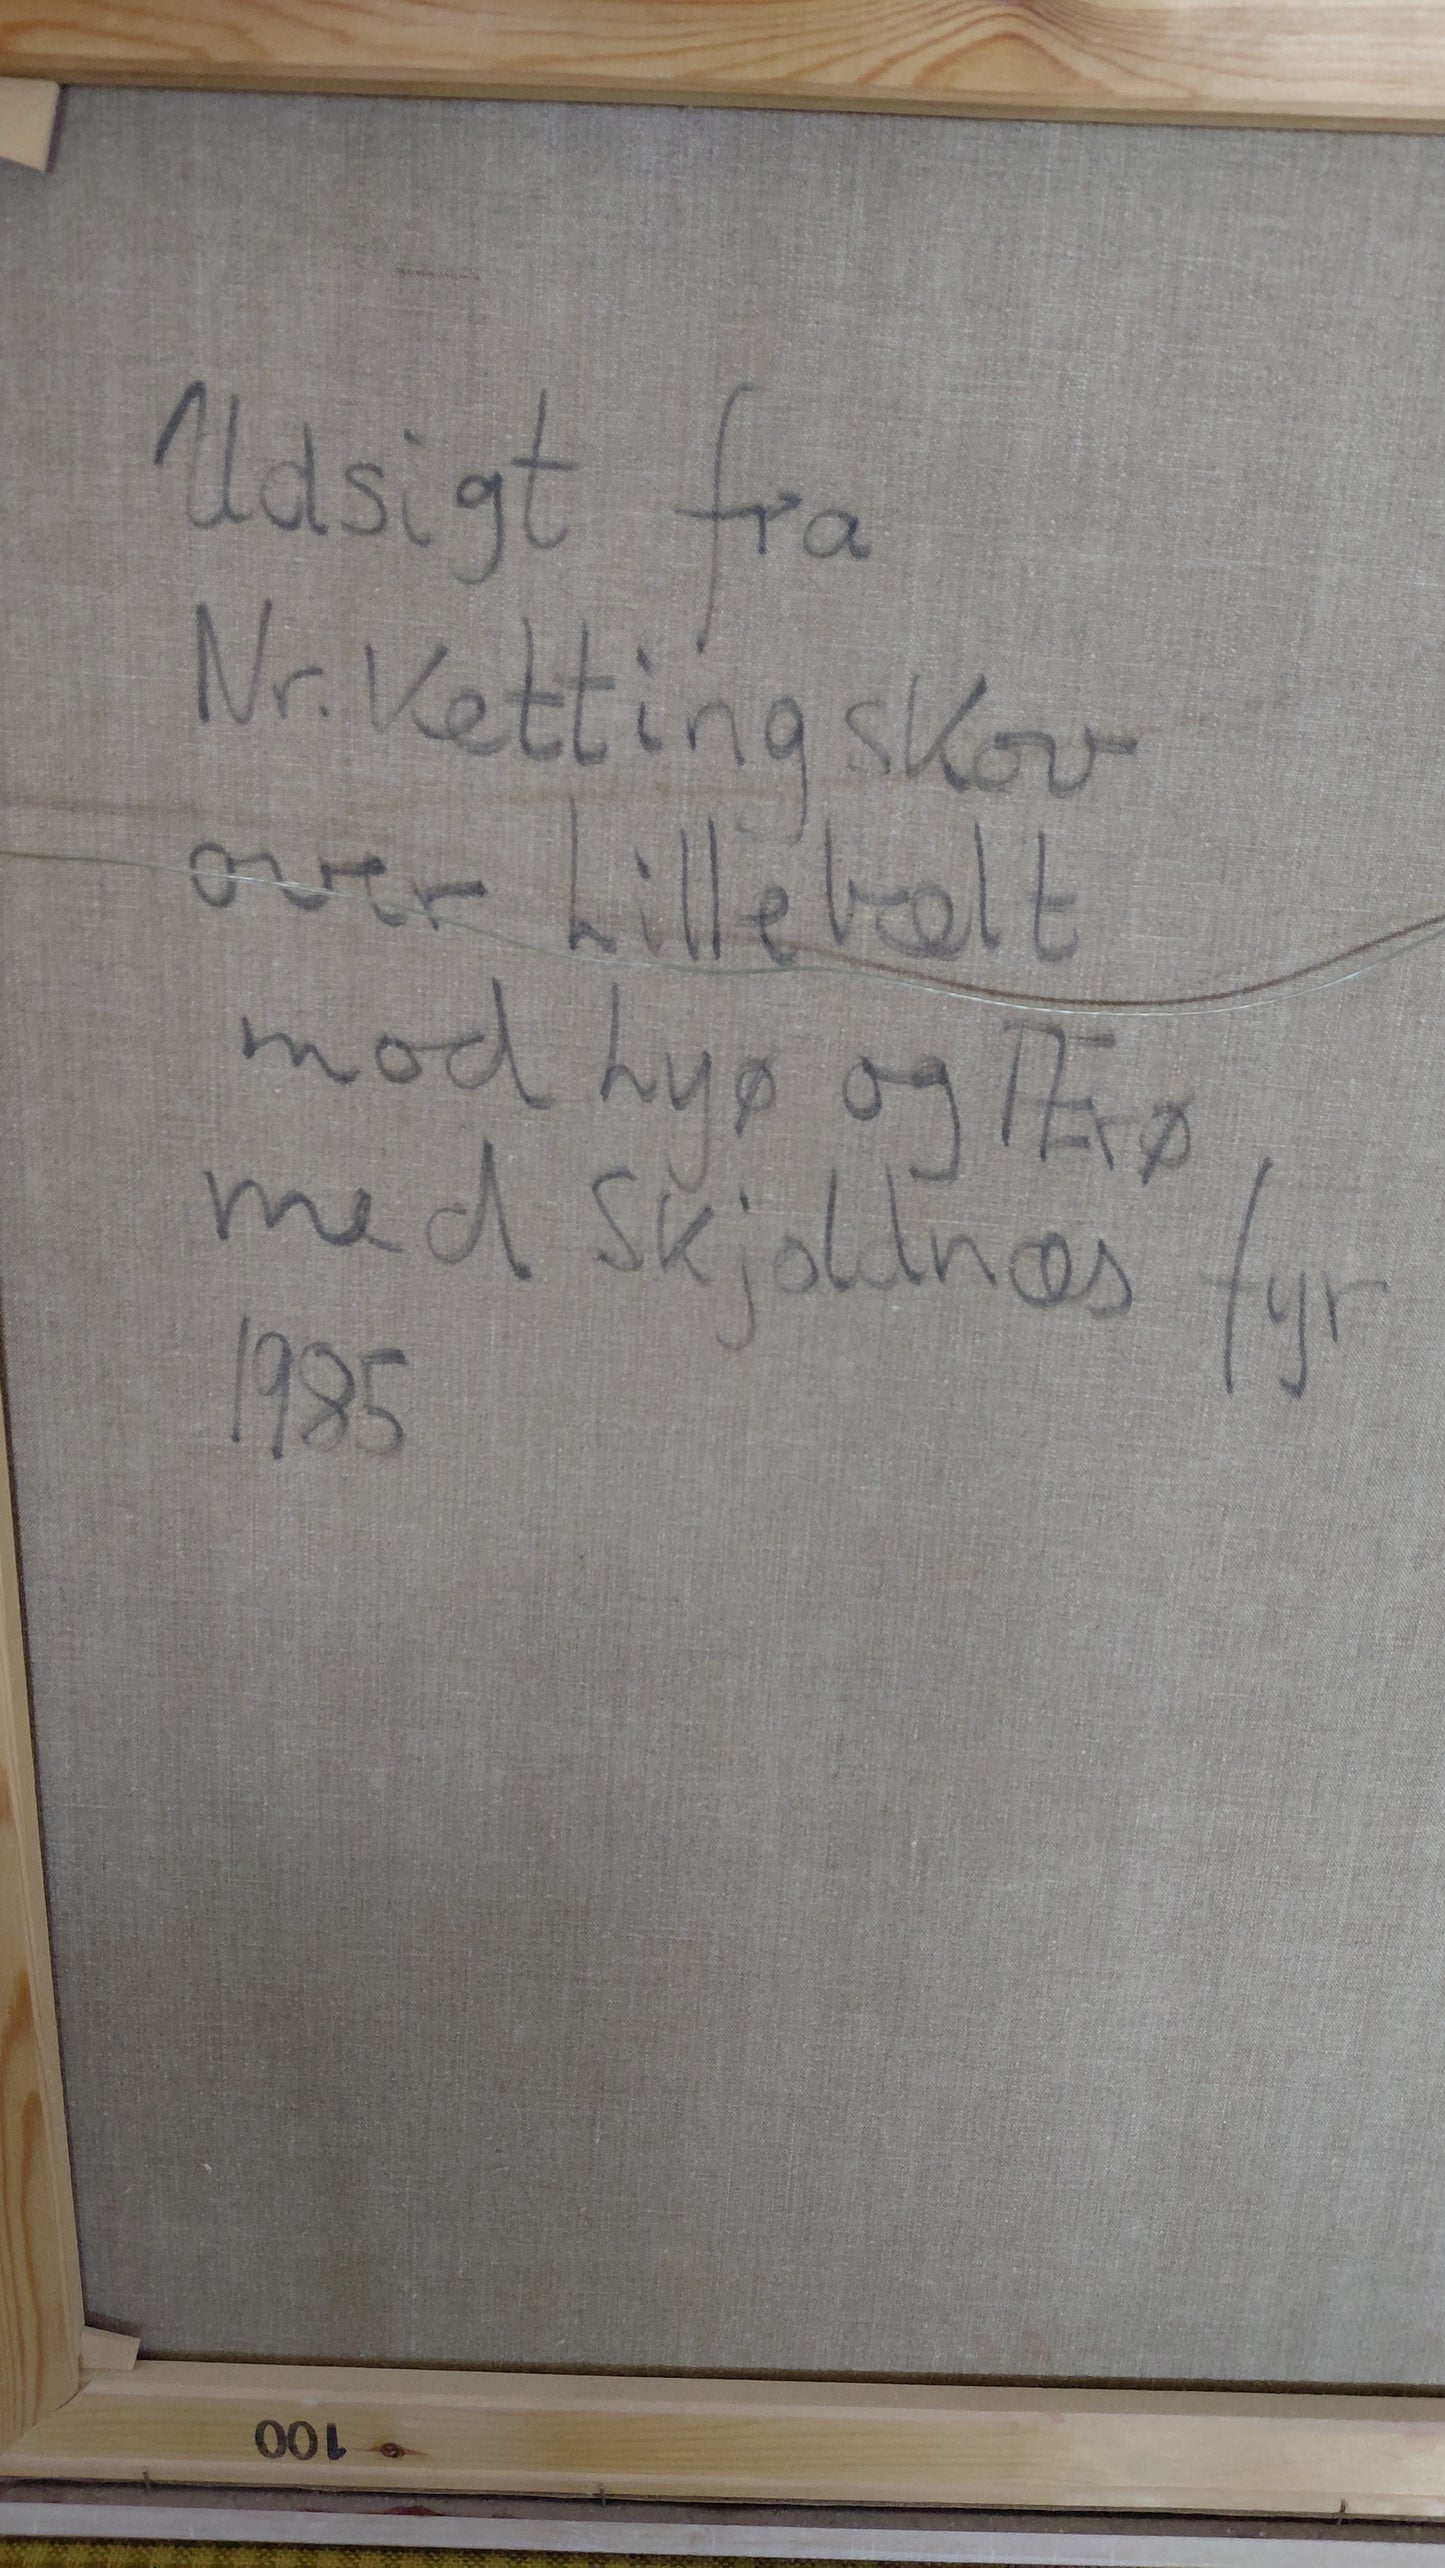 Udsigt fra
Nr. Ketting skov
over Lillebælt
mod Lyø og Ærø
med Skjoldnæs fyr
1985
100